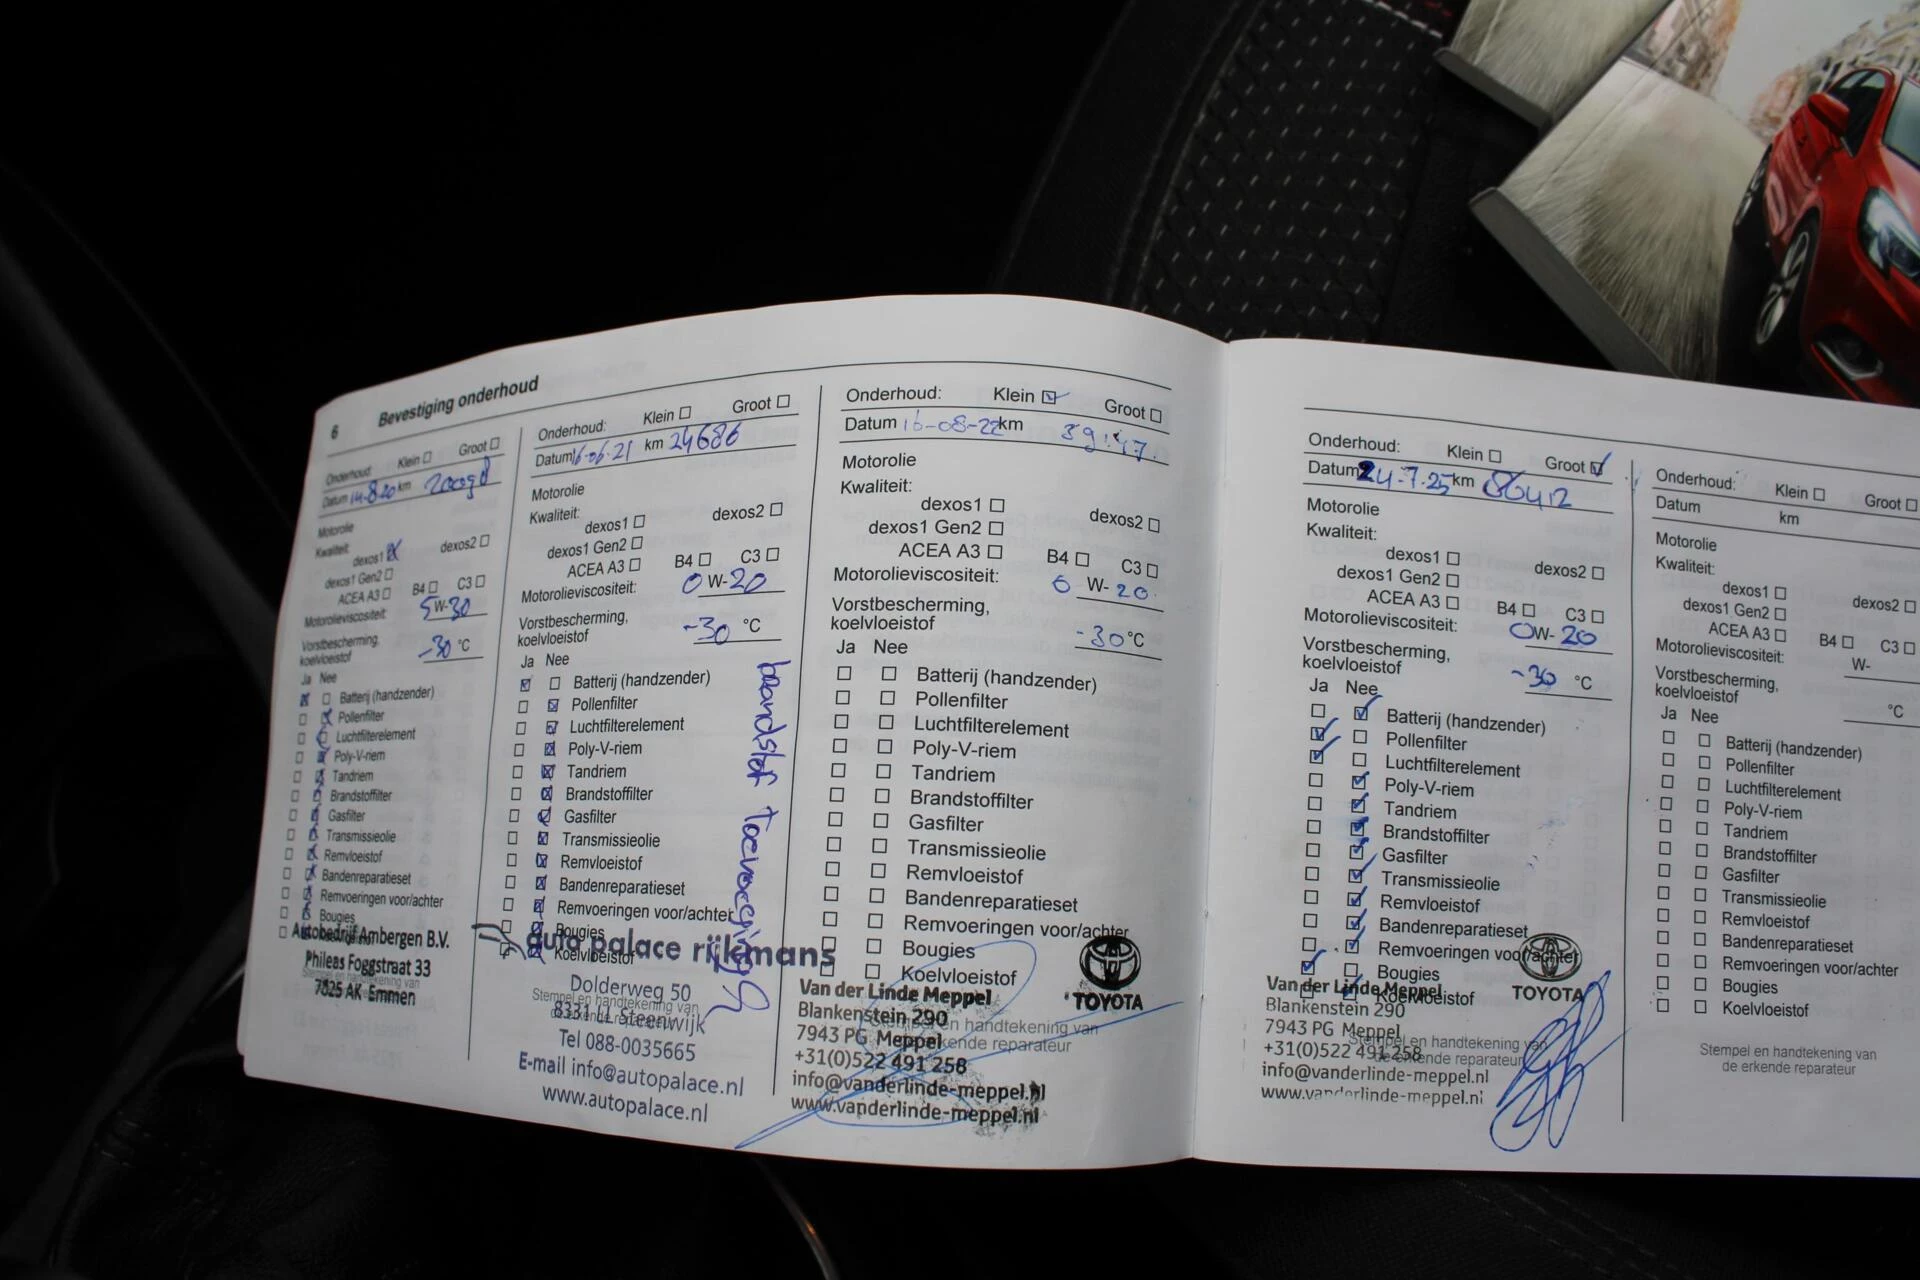 6 Bevestiging onderhoud
Onderhoud: Klein Groot
Datum 14-8-20 km
Motorolie
Kwaliteit:
dexos1 dexos2
dexos1 Gen2
ACEA A3 B4 C3
Motorolieviscositeit: 5W-30
Vorstbescherming,
koelvloeistof -30 °C
Ja Nee
Batterij (handzender)
Pollenfilter
Luchtfilterelement
Poly-V-riem
Tandriem
Brandstoffilter
Gasfilter
Transmissieolie
Remvloeistof
Bandenreparatieset
Remvoeringen voor/achter
Bougies
Autobedrijf Ambergen B.V.
Phileas Foggstraat 33
Stempel en handtekening van
7825 AK Emmen
Onderhoud: Klein Groot
Datum 16-06-21 km 24686
Motorolie
Kwaliteit:
dexos1 dexos2
dexos1 Gen2
ACEA A3 B4 C3
Motorolieviscositeit: 0 W-20
Vorstbescherming,
koelvloeistof -30 °C
Ja Nee
Batterij (handzender)
Pollenfilter
Luchtfilterelement
Poly-V-riem
Tandriem
Brandstoffilter
Gasfilter
Transmissieolie
Remvloeistof
Bandenreparatieset
Remvoeringen voor/achter
Bougies
Koelvloeistof
brandstof toevoeging
auto palace rijkmans
Dolderweg 50
Stempel en handtekening van
8331 LL Steenwijk
Tel 088-0035665
E-mail info@autopalace.nl
www.autopalace.nl
Onderhoud: Klein Groot
Datum 16-08-22 km
Motorolie
Kwaliteit:
dexos1 dexos2
dexos1 Gen2
ACEA A3 B4 C3
Motorolieviscositeit: 0 W-20
Vorstbescherming,
koelvloeistof -30 °C
Ja Nee
Batterij (handzender)
Pollenfilter
Luchtfilterelement
Poly-V-riem
Tandriem
Brandstoffilter
Gasfilter
Transmissieolie
Remvloeistof
Bandenreparatieset
Remvoeringen voor/achter
Bougies
Koelvloeistof
TOYOTA
Van der Linde Meppel
Blankenstein 290
Stempel en handtekening van
7943 PG Meppel
de erkende reparateur
+31(0)522 491 258
info@vanderlinde-meppel.nl
www.vanderlinde-meppel.nl
Onderhoud: Klein Groot
Datum 24-7-25 km 86412
Motorolie
Kwaliteit:
dexos1 dexos2
dexos1 Gen2
ACEA A3 B4 C3
Motorolieviscositeit: 0W-20
Vorstbescherming,
koelvloeistof -30 °C
Ja Nee
Batterij (handzender)
Pollenfilter
Luchtfilterelement
Poly-V-riem
Tandriem
Brandstoffilter
Gasfilter
Transmissieolie
Remvloeistof
Bandenreparatieset
Remvoeringen voor/achter
Bougies
Koelvloeistof
TOYOTA
Van der Linde Meppel
Blankenstein 290
7943 PG Meppel
Stempel en handtekening van
+31(0)522 491 258
de erkende reparateur
info@vanderlinde-meppel.nl
www.vanderlinde-meppel.nl
Onderhoud: Klein Groot
Datum km
Motorolie
Kwaliteit:
dexos1 dexos2
dexos1 Gen2
ACEA A3 B4 C3
Motorolieviscositeit: W-
Vorstbescherming,
koelvloeistof °C
Ja Nee
Batterij (handzender)
Pollenfilter
Luchtfilterelement
Poly-V-riem
Tandriem
Brandstoffilter
Gasfilter
Transmissieolie
Remvloeistof
Bandenreparatieset
Remvoeringen voor/achter
Bougies
Koelvloeistof
Stempel en handtekening van
de erkende reparateur